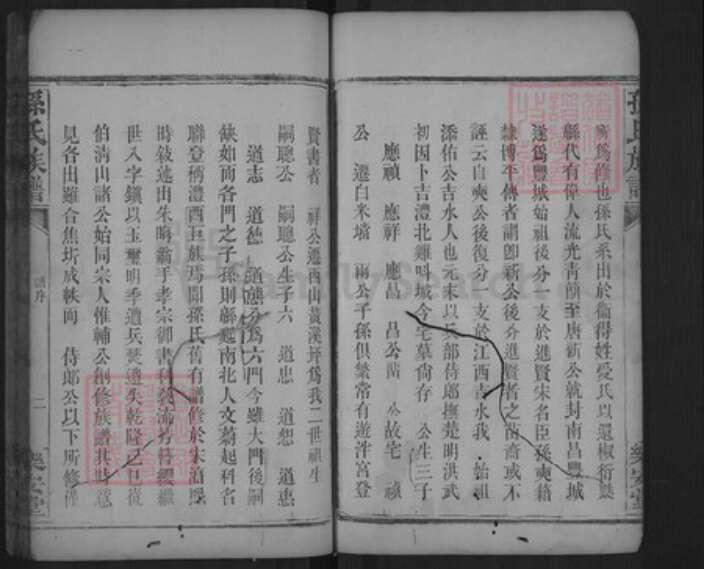 孫氏族譜
樂安堂
所爲修也孫氏系出於衞得姓受氏以還椒衍藂
緜代有偉人流光青簡至唐新公就封南昌豐城
遂爲豐城始祖後分一支於進賢宋名臣孫奭籍
隸博平傳者謂卽新公後分進賢者之苗裔或不
誣云自奭公後復分一支於江西吉水我 始祖
添佑公吉水人也元末以兵部侍郎撫楚明洪武
初因卜吉澧北雞叫城今宅墓尙存 公生三子
應禎 應祥 應昌 昌公 公故宅 禎
公 遷白米壋 兩公子孫俱繁常有遊泮宮登
賢書者 祥公遷西山黃溪坪爲我二世祖生
嗣聰公 嗣聰公生子六 道忠 道想 道惠
道志 道德 道 分爲六門今雖大門後嗣
缺如而各門之子孫則緜延南北人文蔚起科名
聯登稱澧西巨族焉聞孫氏舊有譜修於宋淳熙
時敍述出朱晦翁手孝宗御書科 流芳簪纓繼
世八字鎭以玉璽明季遭兵燹遺失乾隆己巳從
伯淸山諸公始同宗人惟輔公創修族譜其時意
見各出雖合焦圻成帙而 侍郎公以下所修僅
孫氏族譜
譜序
二
樂安堂
FamilySearch